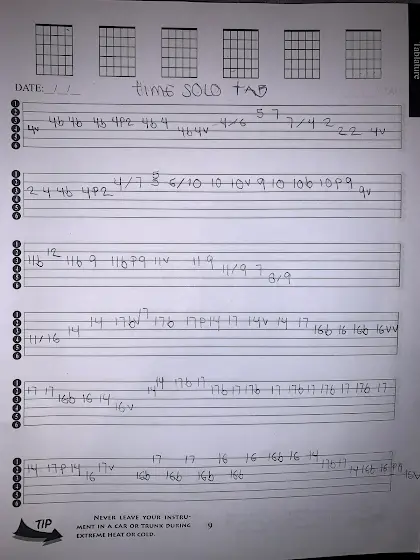 Tablature
DATE: _/_/_ TIME SOLO TAB
1 2 3 4 5 6
4v 4b 4b 4b 4p2 4b 4 4b 4v 4/6 5 7 7/4 2 22 4v
1 2 3 4 5 6
2 4 4b 4p2 4/7 5 5 6/10 10 10v 9 10 10b 10p9 9v
1 2 3 4 5 6
11b 12 11b 9 11b p9 11v 11 9 11/9 7 8/9
1 2 3 4 5 6
11/16 14 14 17b 17 17b 17p14 17 14v 14 17 16b 16 16b 16vv
1 2 3 4 5 6
17 17 16b 16 14 16v 14 14 17b 17 17b 17 17b 17 17b 17 17b 17 17b 17
1 2 3 4 5 6
14 17p14 16 17v 16b 17 16b 17 16b 16 16b 16 16b 16 14 17b 17 14 16b 16
TIP
NEVER LEAVE YOUR INSTRU-
MENT IN A CAR OR TRUNK DURING
EXTREME HEAT OR COLD.
9